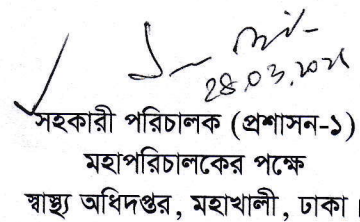 28.03.2021
সহকারী পরিচালক (প্রশাসন-১)
মহাপরিচালকের পক্ষে
স্বাস্থ্য অধিদপ্তর, মহাখালী, ঢাকা।